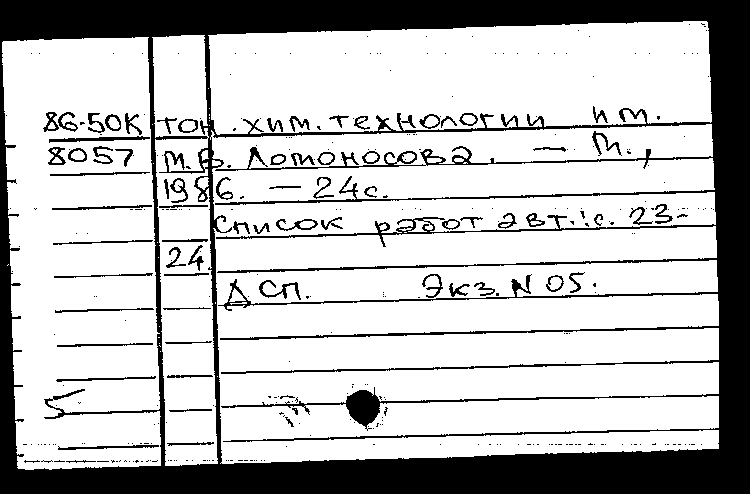 86-50К тон. хим. технологии им.
8057 М.В. Ломоносова. — М.,
1986. — 24с.
Список работ авт.: с. 23-
24.
ДСП. Экз. N 05.
5